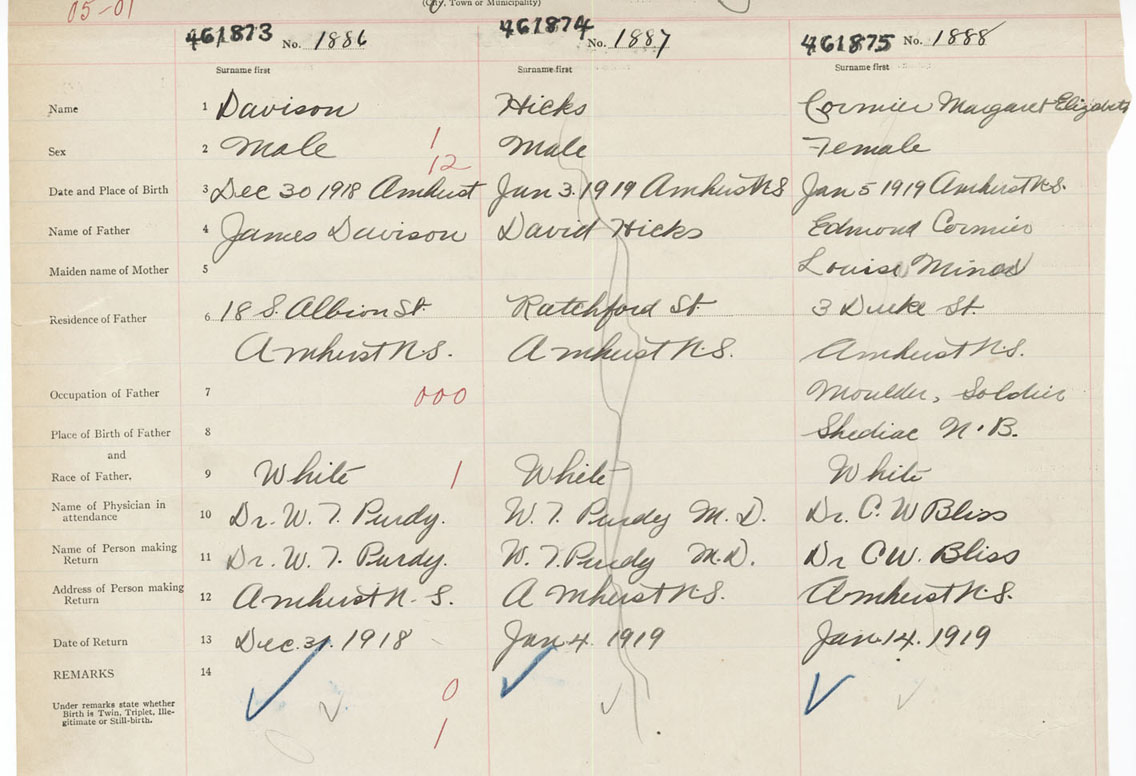 05-01
(City, Town or Municipality)
461873 No. 1886 461874 No. 1887 461875 No. 1888
Surname first Surname first Surname first
Name 1 Davison Hicks Cormier Margaret Elizabeth
Sex 2 Male 1 Male Female
12
Date and Place of Birth 3 Dec 30 1918 Amherst Jan 3. 1919 Amherst N.S Jan 5 1919 Amherst N.S.
Name of Father 4 James Davison David Hicks Edmond Cormier
Maiden name of Mother 5 Louise
Residence of Father 6 18 S. Albion St. Ratchford St 3 Duke St.
Amherst N.S. Amherst N.S. Amherst N.S.
Occupation of Father 7 000 Moulder, Soldier
Place of Birth of Father 8 Shediac N.B.
and
Race of Father, 9 White 1 White White
Name of Physician in attendance 10 Dr. W. T. Purdy. W. T. Purdy M.D. Dr. C. W Bliss
Name of Person making Return 11 Dr. W. T. Purdy. W. T. Purdy M.D. Dr C W. Bliss
Address of Person making Return 12 Amherst N.S. Amherst N.S. Amherst N.S.
Date of Return 13 Dec. 31. 1918 Jan 4. 1919 Jan 14. 1919
REMARKS 14
0
Under remarks state whether
Birth is Twin, Triplet, Ille-
gitimate or Still-birth.
1